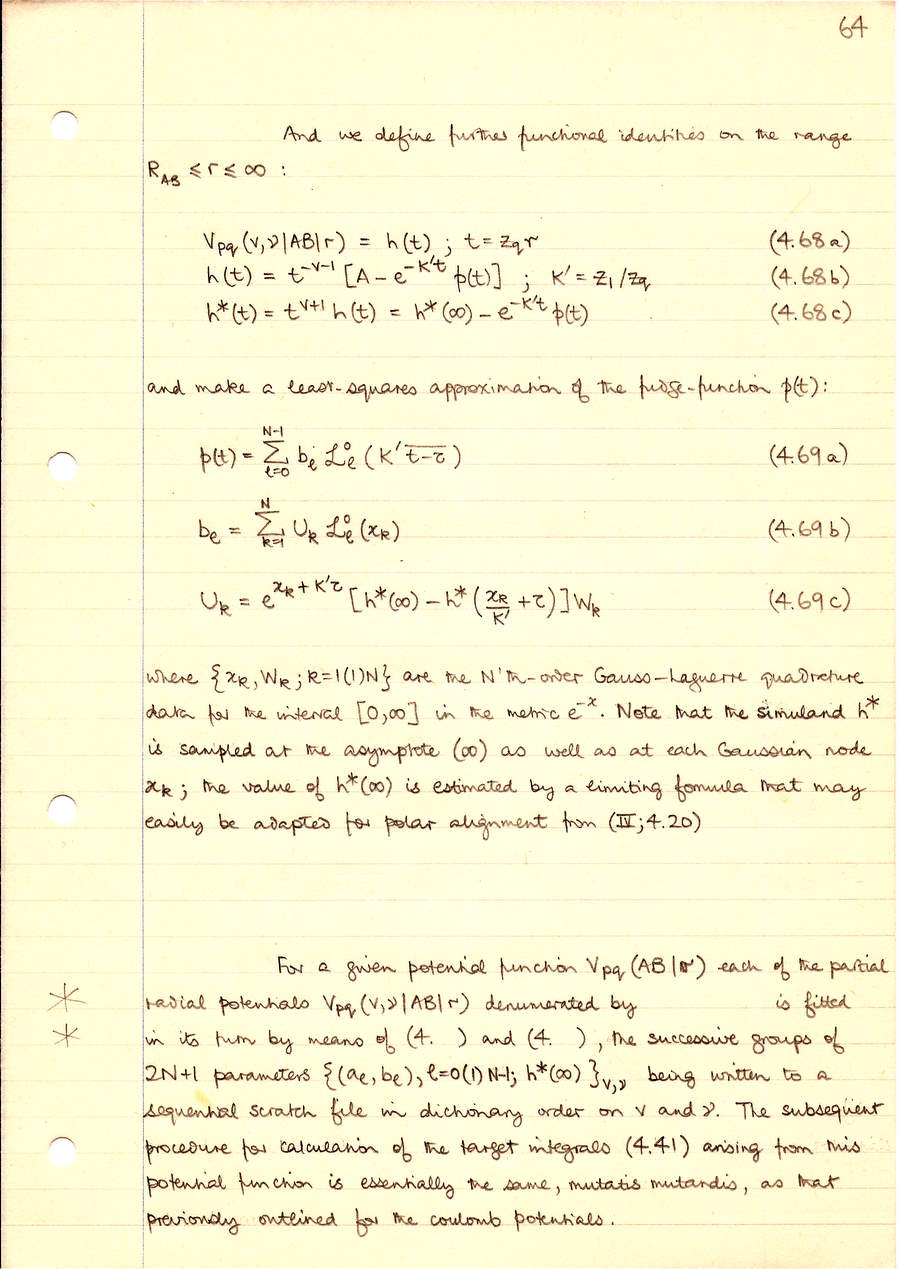 64
And we define further functional identities on the range
R_AB ≤ r ≤ ∞ :
V_pq (v,ν|AB|r) = h(t) ; t = z_q r (4.68a)
h(t) = t^{-v-1} [A - e^{-K't} p(t)] ; K' = z_1/z_q (4.68b)
h*(t) = t^{v+1} h(t) = h*(∞) - e^{-K't} p(t) (4.68c)
and make a least-squares approximation of the fudge-function p(t):
p(t) = \sum_{ℓ=0}^{N-1} b_ℓ ℒ_ℓ^0 (K' \overline{t-τ}) (4.69a)
b_ℓ = \sum_{k=1}^{N} U_k ℒ_ℓ^0 (x_k) (4.69b)
U_k = e^{x_k + K'τ} [h*(∞) - h*(x_k/K' + τ)] W_k (4.69c)
where {x_k, W_k ; k=1(1)N} are the N'th-order Gauss-Laguerre quadrature
data for the interval [0,∞] in the metric e^{-x}. Note that the simuland h*
is sampled at the asymptote (∞) as well as at each Gaussian node
x_k ; the value of h*(∞) is estimated by a limiting formula that may
easily be adapted for polar alignment from (IV;4.20)
For a given potential function V_pq (AB|r) each of the partial
* radial potentials V_pq (v,ν|AB|r) denumerated by is fitted
* in its turn by means of (4. ) and (4. ), the successive groups of
2N+1 parameters {(a_ℓ, b_ℓ), ℓ=0(1)N-1; h*(∞)}_{v,ν} being written to a
sequential scratch file in dictionary order on v and ν. The subsequent
procedure for calculation of the target integrals (4.41) arising from this
potential function is essentially the same, mutatis mutandis, as that
previously outlined for the coulomb potentials.